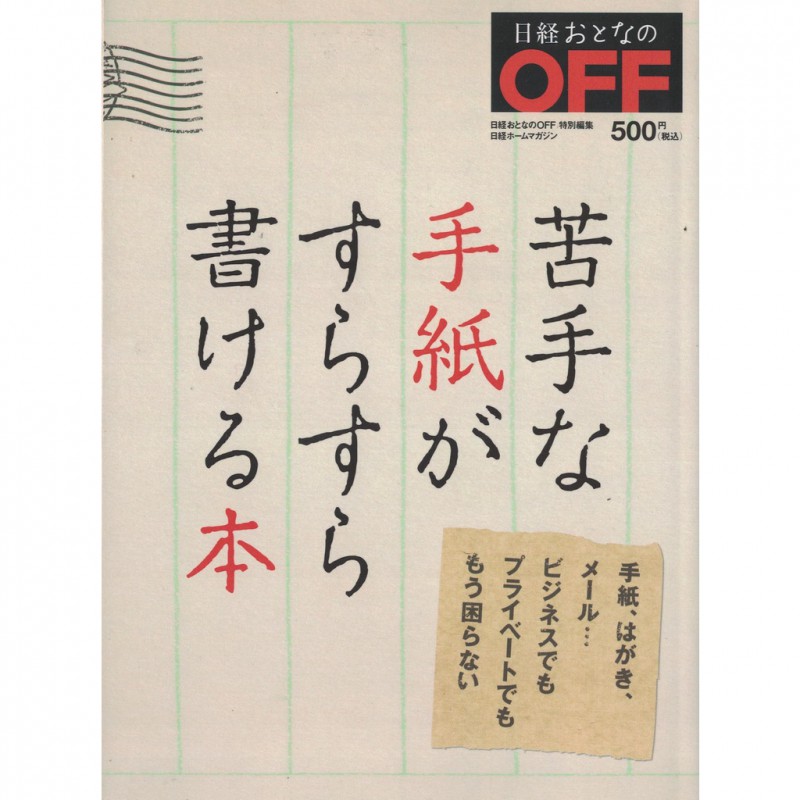 日経おとなの
OFF
日経おとなのOFF 特別編集
日経ホームマガジン
500円(税込)
苦手な
手紙が
すらすら
書ける本
手紙、はがき、
メール…
ビジネスでも
プライベートでも
もう困らない